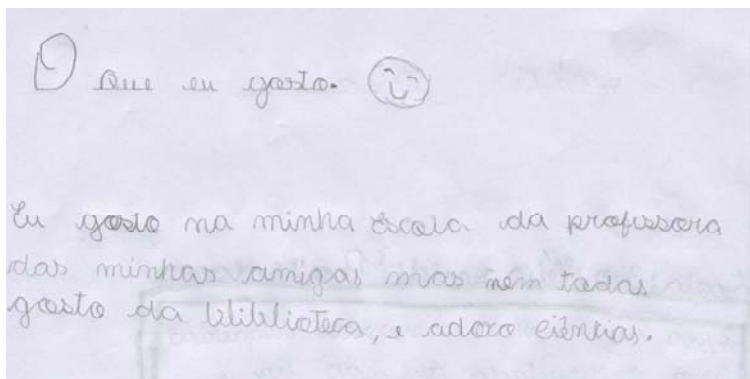 O Que eu gosto.
Eu gosto na minha escola da professora
das minhas amigas mas nem todas
gosto da bliblioteca, e adoro ciências.